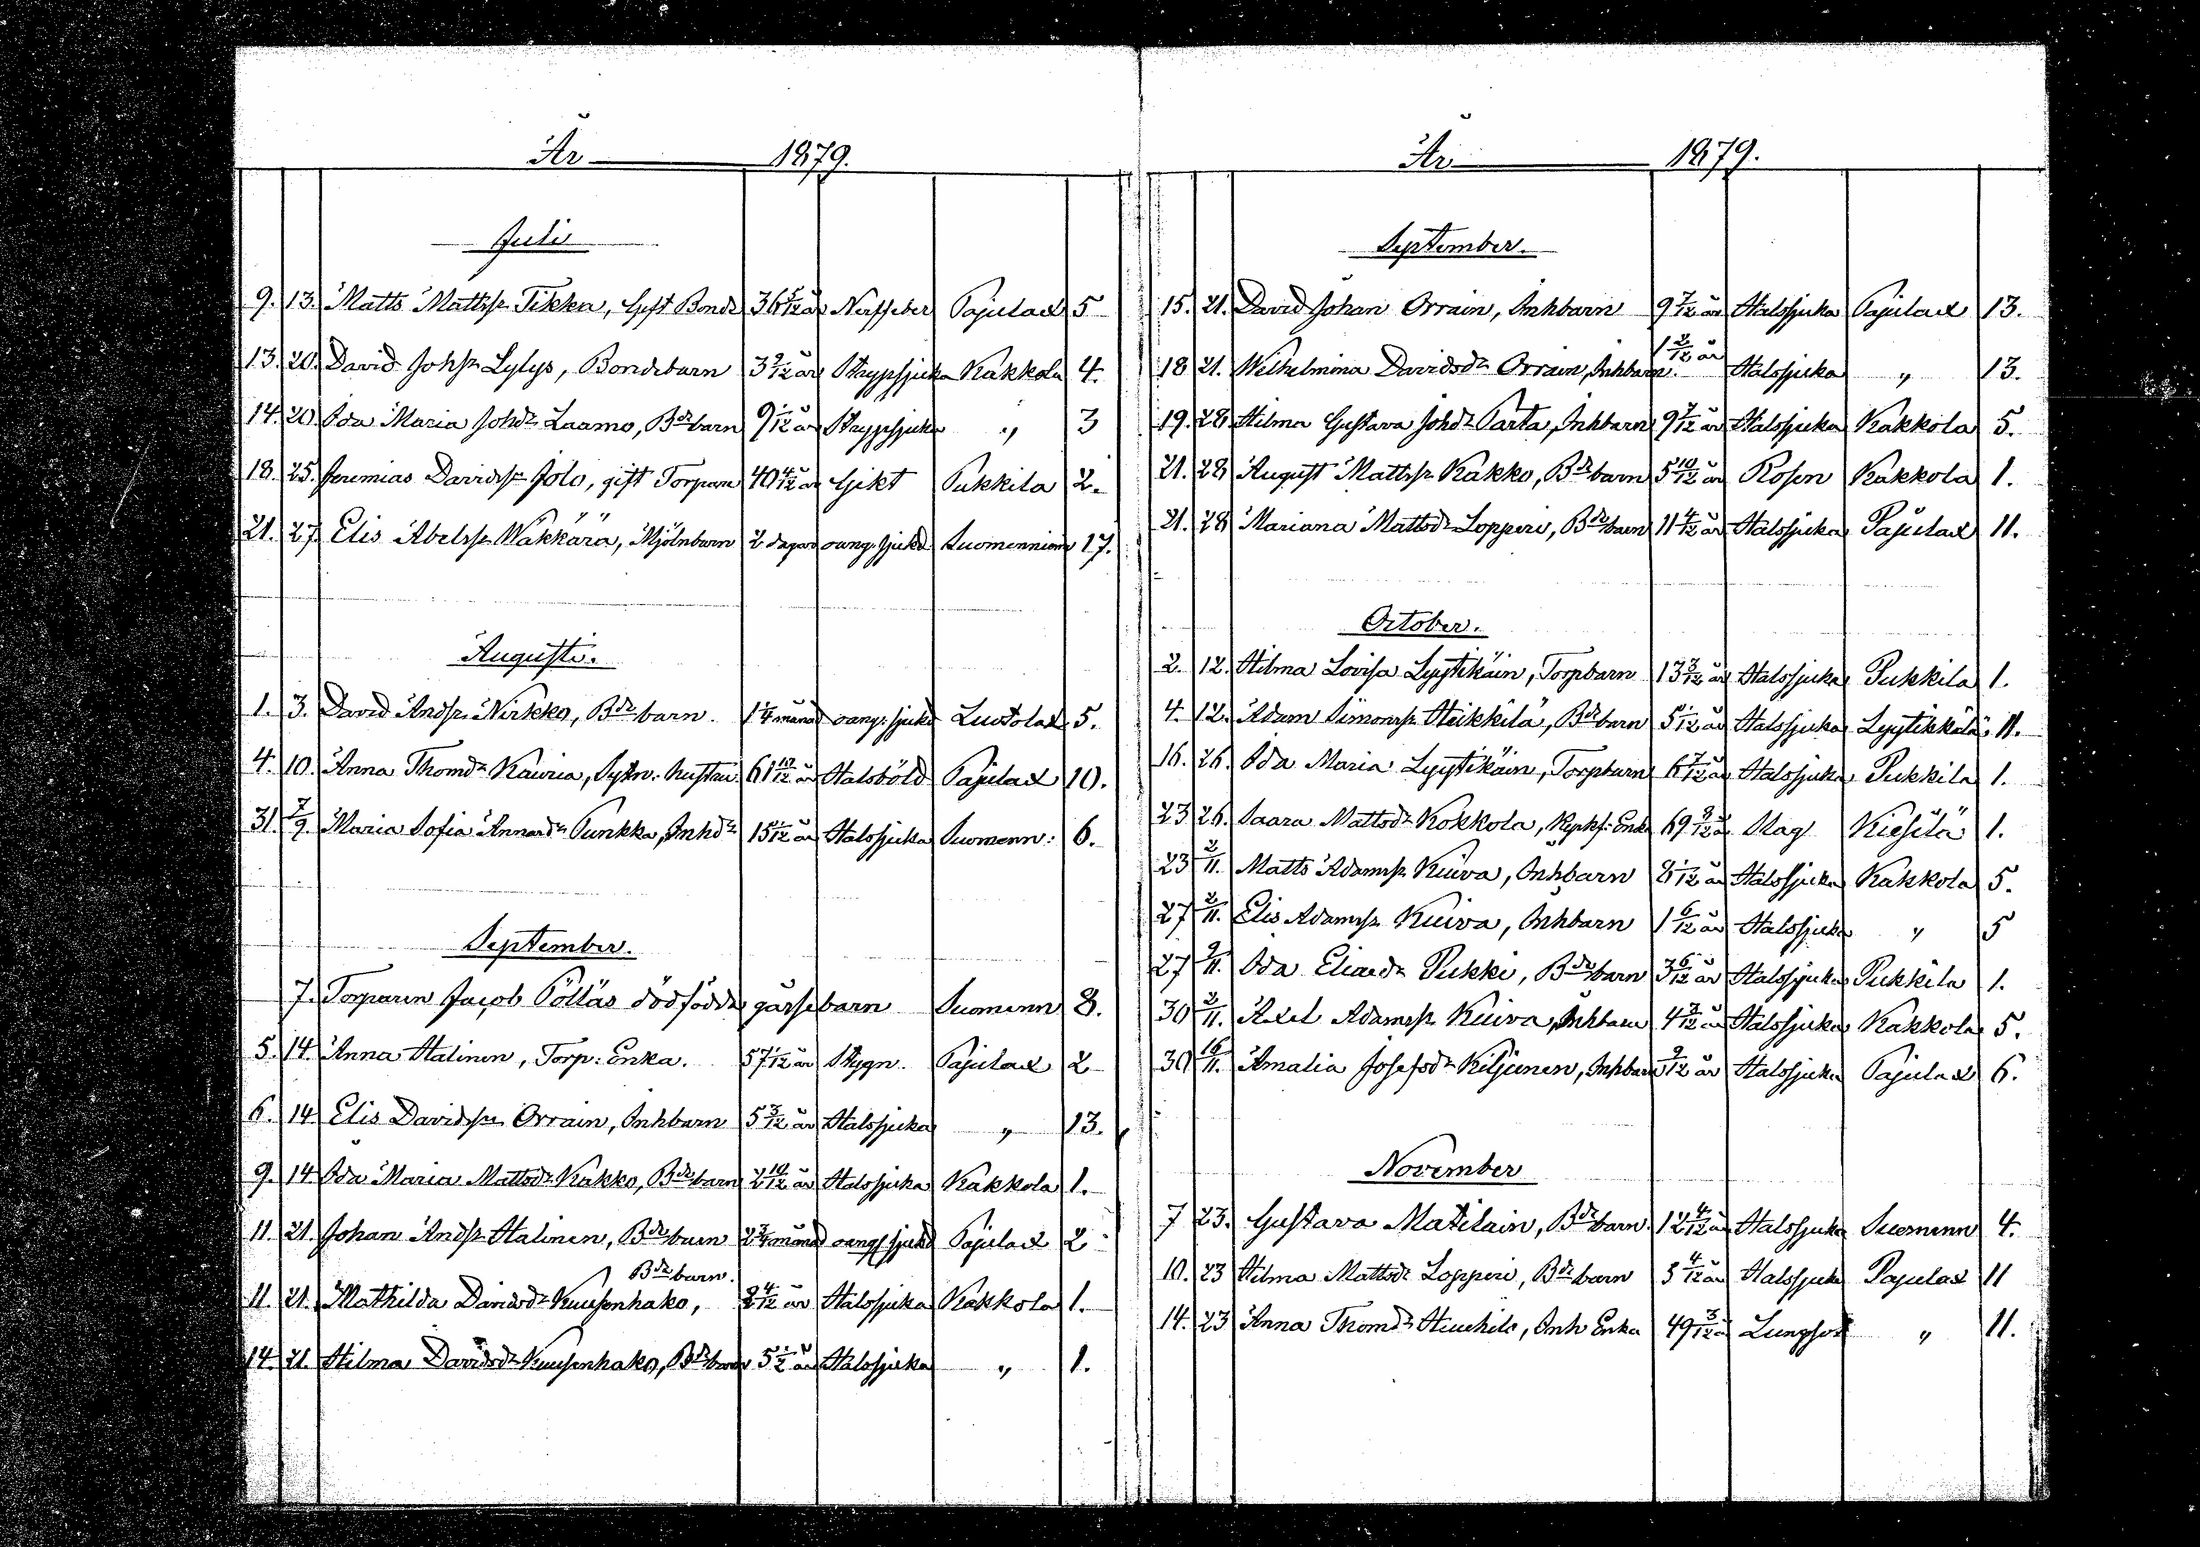 År 1879.
Juli
9. 13. Matts Mattss. Tikka, Gift Bonde 36 5/12 år Nerffeber Pajulax 5
13. 20. David Johss. Lylys, Bondebarn 3 9/12 år Stryppsjuka Kakkola 4.
14. 20. Ida Maria Johdr Laamo, Bdebarn 9 1/12 år Stryppsjuka " 3
18. 25. Jeremias Davidss. Jolo, gift Torpare 40 4/12 år Gikt Pukkila 2.
21. 27. Elis Abelss. Wäkkärä, Mjölnbarn 2 dagar oang. sjukd Suomenniemi 17.
Augusti.
1. 3. David Andss. Nirkko, Bdebarn. 1 1/4 månad oang. sjukd Luotolax 5.
4. 10. Anna Thomdr Kauria, Sytn. hustru 61 10/12 år Halsböld Pajulax 10.
31. 7/9. Maria Sofia Annasdr Punkka, Inhdr 15 1/12 år Halssjuka Suomenn: 6.
September.
7. Torparen Jacob Pölläs dödfödda gossebarn Suomenn 8.
5. 14. Anna Halinen, Torp: Enka. 57 1/12 år Stygn. Pajulax 2
6. 14 Elis Davidss. Orrain, Inhbarn 5 3/12 år Halssjuka " 13.
9. 14 Ida Maria Mattsdr Kakko, Bdebarn 2 10/12 år Halssjuka Kakkola 1.
11. 21. Johan Andss. Halinen, Bdebarn 2 3/4 månad oang sjukd Pajulax 2
Bdebarn.
11. 21. Mathilda Davidsdr Kuusenhako, 8 4/12 år Halssjuka Kakkola 1.
14. 21. Hilma Davidsdr Kuusenhako, Bdebarn 5 1/2 år Halssjuka " 1.
År 1879.
September.
15. 21. David Johan Orrain, Inhbarn 9 7/12 år Halssjuka Pajulax 13.
18 21. Wilhelmina Davidsdr Orrain, Inhbarn. 1 2/12 år Halssjuka " 13.
19. 28. Hilma Gustava Johdr Parta, Inhbarn 9 7/12 år Halssjuka Kakkola 5.
21. 28 August Mattss. Kakko, Bdebarn 5 10/12 år Rosen Kakkola 1.
21. 28 Mariana Mattsdr Lopperi, Bdebarn 11 4/12 år Halssjuka Pajulax 11.
October.
2. 12. Hilma Lovisa Lyytikäin, Torpbarn 13 3/12 år Halssjuka Pukkila 1.
4. 12. Adam Simonss. Heikkilä, Bdebarn 5 1/12 år Halssjuka Lyytikkälä 11.
16. 26. Ida Maria Lyytikäin, Torpbarn 6 7/12 år Halssjuka Pukkila 1.
23 26. Saara Mattsdr Kokkola, Enka 69 8/12 år Slag Kiesilä 1.
23 2/11. Matts Adamss. Kuiva, Inhbarn 8 1/12 år Halssjuka Kakkola 5.
27 2/11. Elis Adamss. Kuiva, Inhbarn 1 6/12 år Halssjuka " 5
27 9/11. Ida Eliaedr Pukki, Bdebarn 3 6/12 år Halssjuka Pukkila 1.
30 2/11. Axel Adamss. Kuiva, Inhbarn 4 2/12 år Halssjuka Kakkola 5.
30 16/11. Amalia Josefsdr Kiljunen, Inhbarn 9/12 år Halssjuka Pajulax 6.
November
7 23. Gustava Matilain, Bdebarn. 12 4/12 år Halssjuka Suomenn 4.
10. 23 Hilma Mattsdr Lopperi, Bdebarn 3 4/12 år Halssjuka Pajulax 11
14. 23 Anna Thomdr Hiuchilo, Inh Enka 49 3/12 år Lungsot " 11.